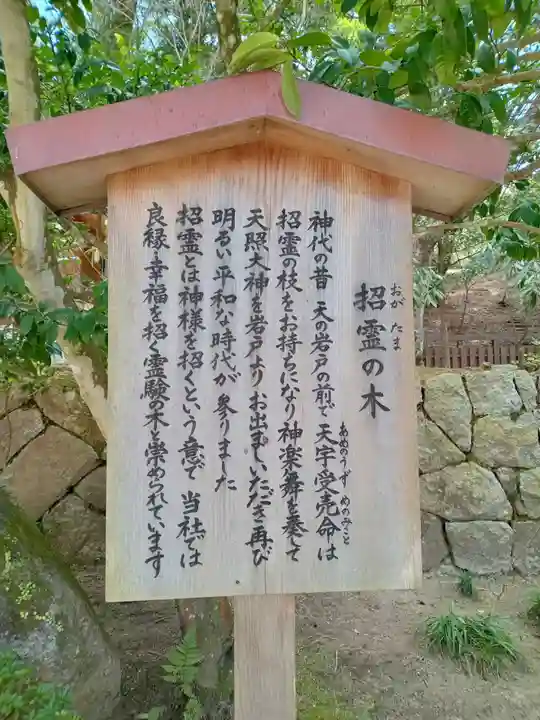 招霊の木
おが たま
神代の昔 天の岩戸の前で 天宇受売命は
あめのうずめのみこと
招霊の枝をお持ちになり 神楽舞を奏て
天照大神を岩戸よりお出ましいただき再び
明るい平和な時代が参りました
招霊とは神様を招くという意で 当社では
良縁・幸福を招く霊験の木と崇められています